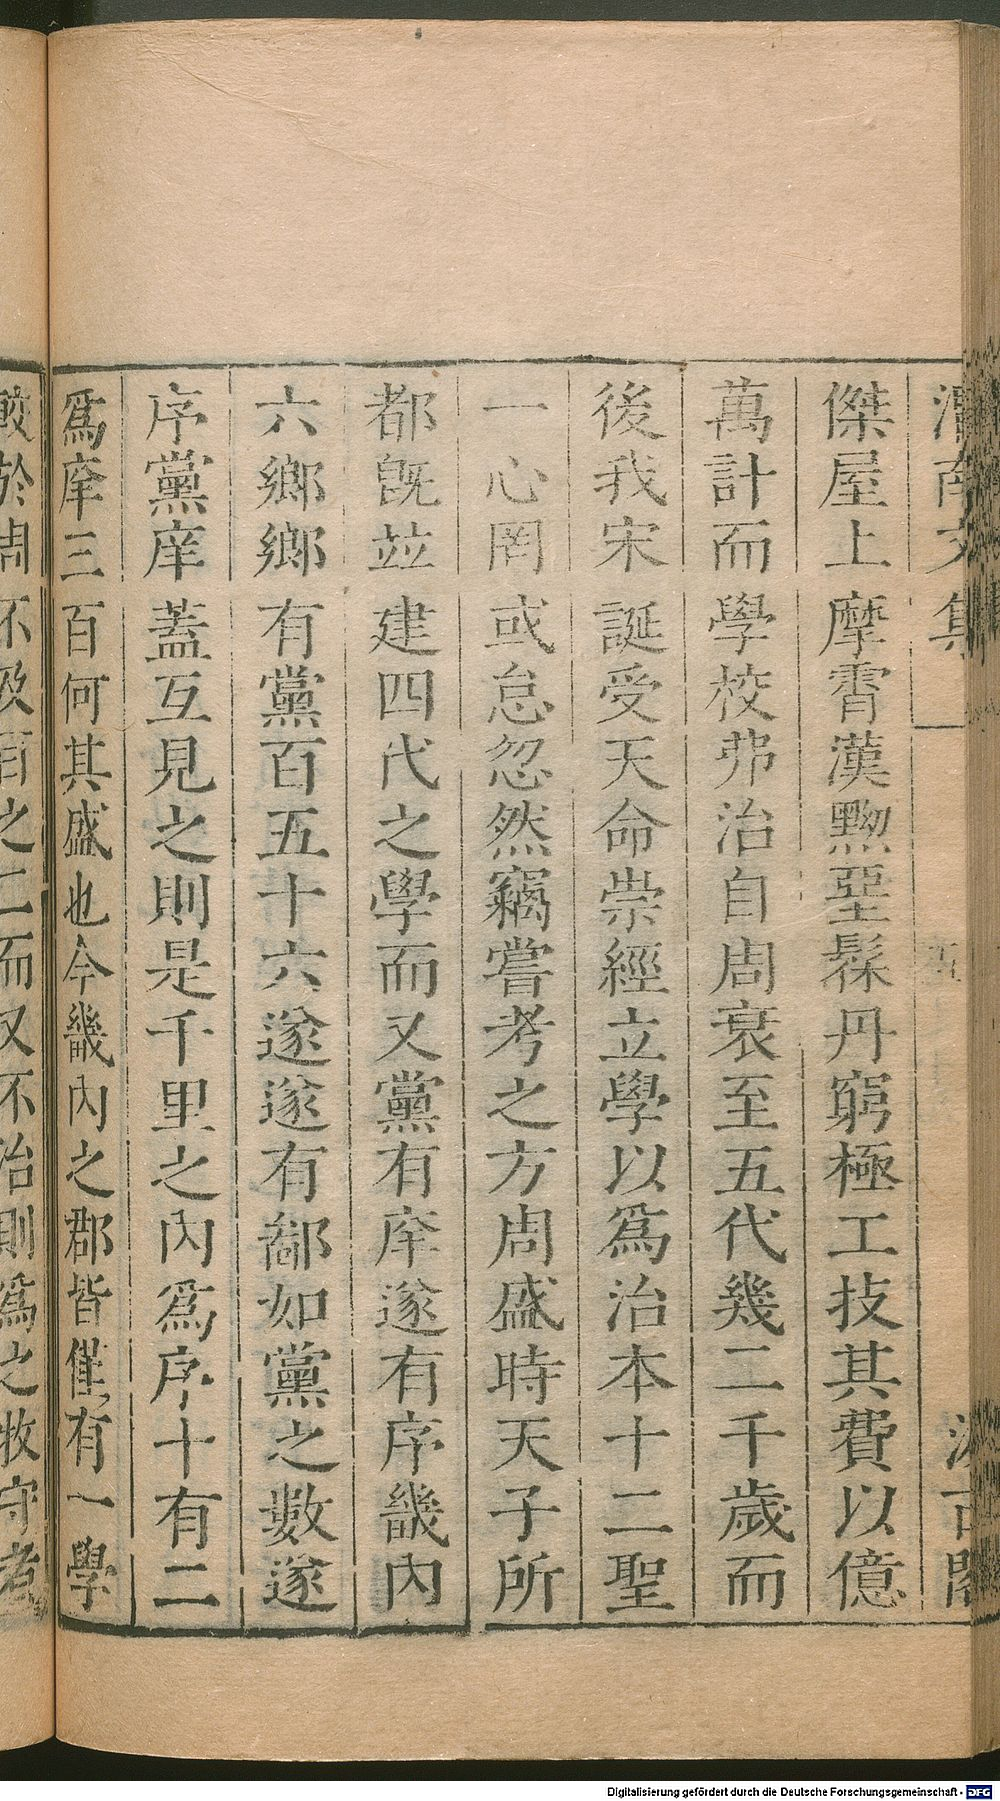 渭南文集
汲古閣
傑屋上摩霄漢黝堊髹丹窮極工技其費以億
萬計而學校弗治自周衰至五代幾二千歲而
後我宋誕受天命崇經立學以爲治本十二聖
一心罔或怠忽然竊嘗考之方周盛時天子所
都旣竝建四代之學而又黨有庠遂有序畿內
六鄉鄉有黨百五十六遂遂有鄙如黨之數遂
序黨庠蓋互見之則是千里之內爲序十有二
爲庠三百何其盛也今畿內之郡皆僅有一學
較於周不及百之二而又不治則爲之牧守者
Digitalisierung gefördert durch die Deutsche Forschungsgemeinschaft - DFG